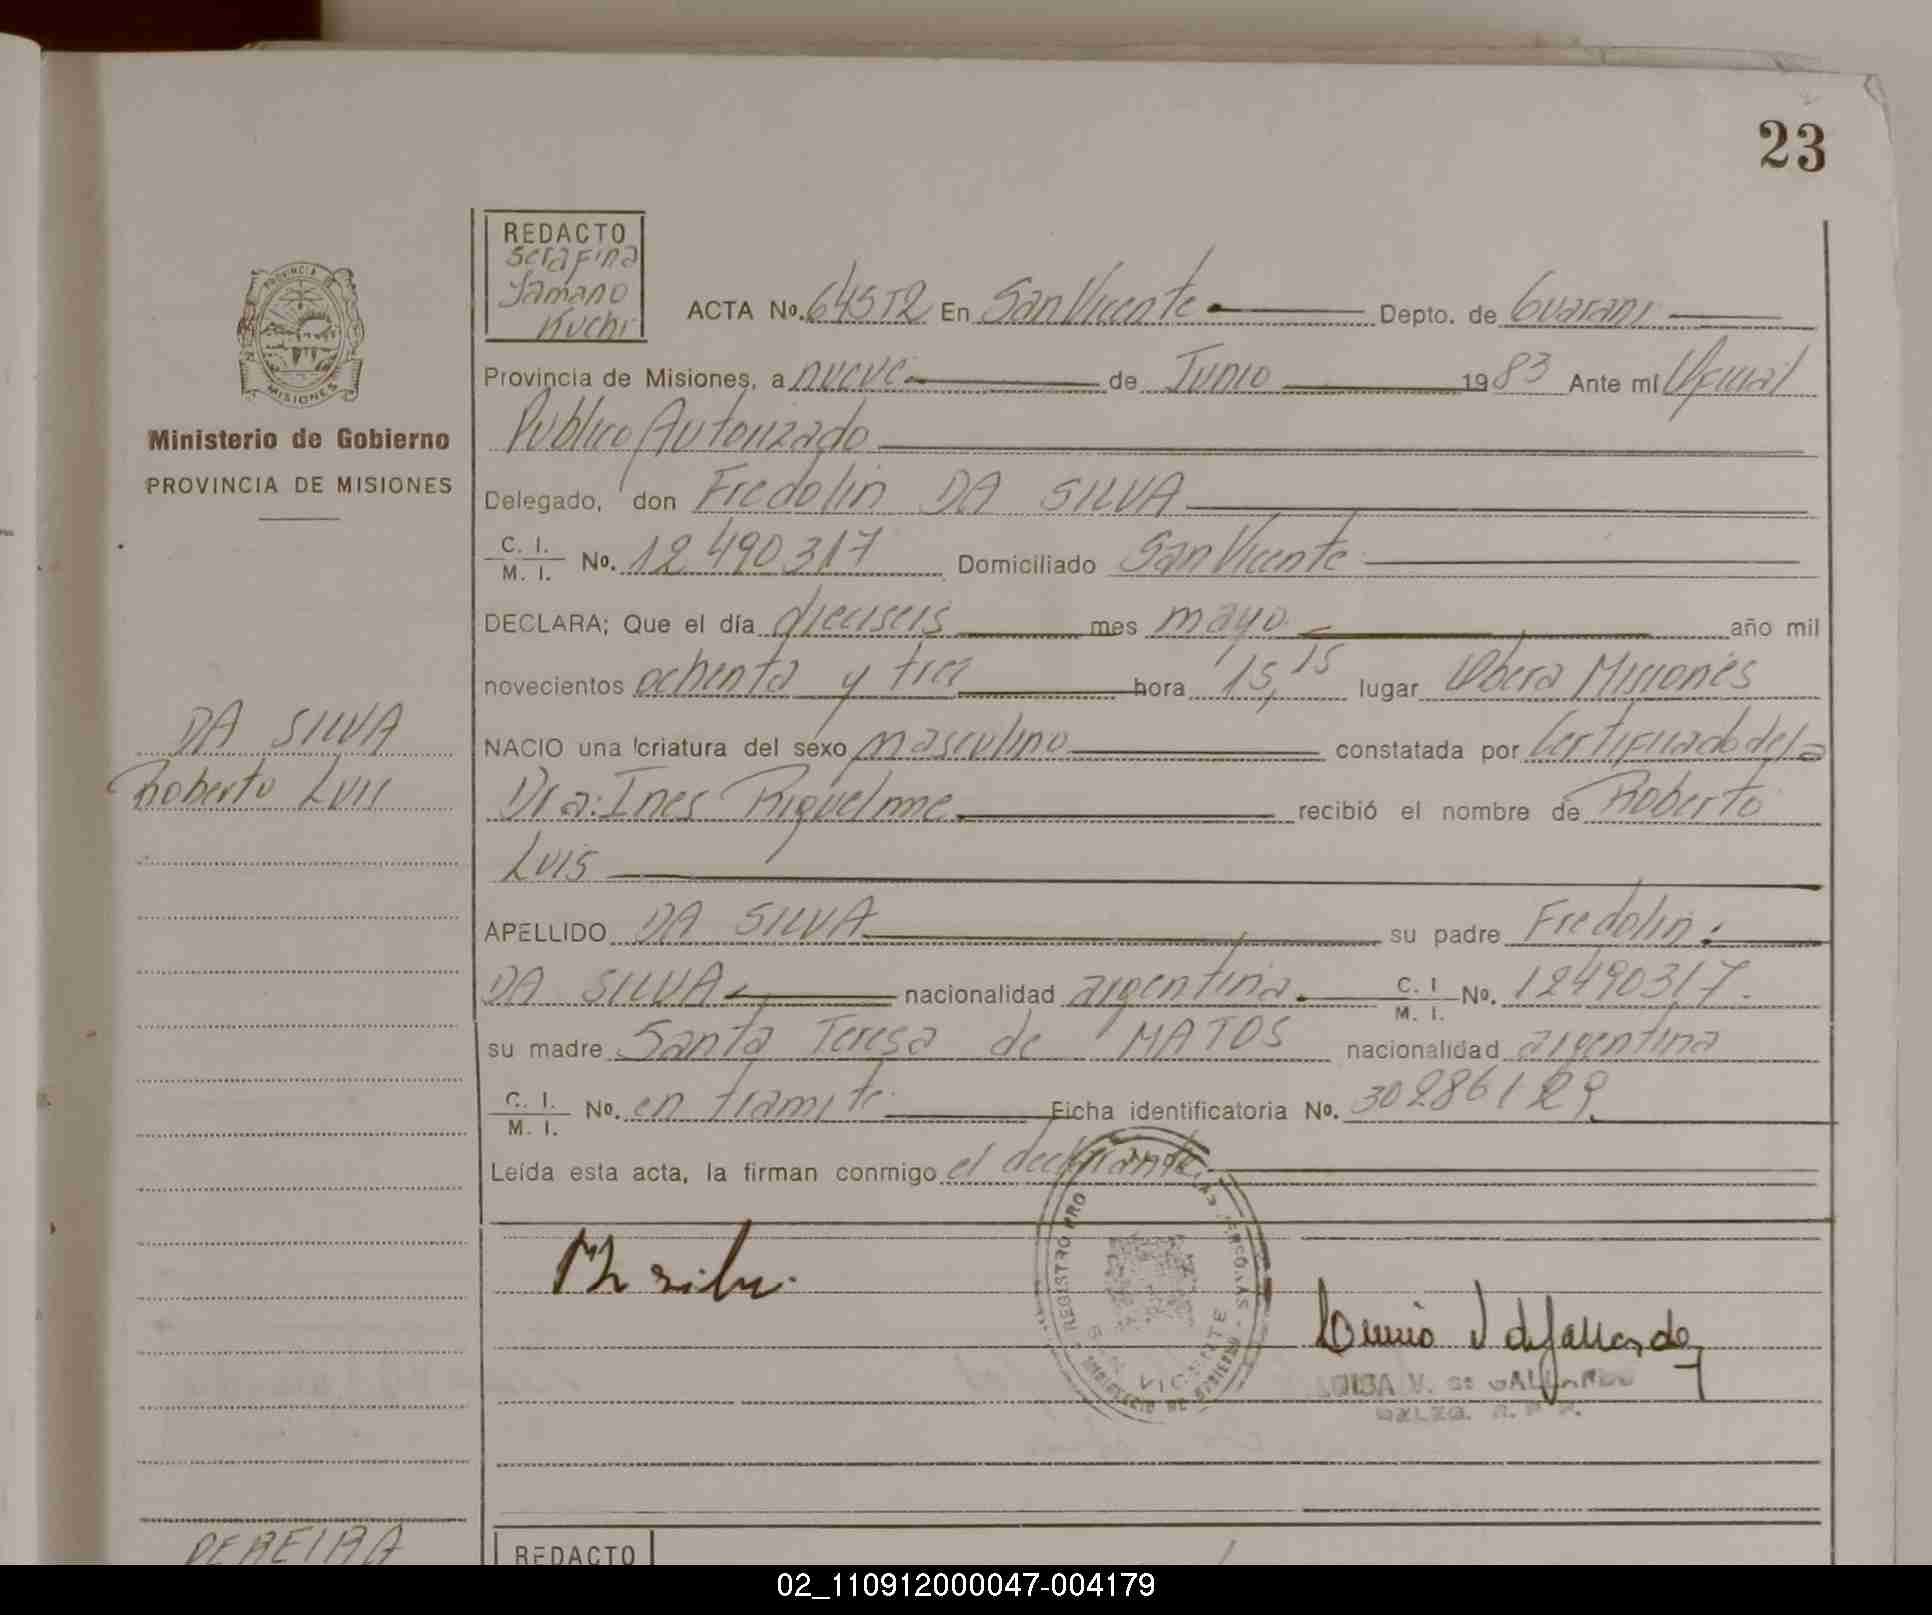 23
REDACTO
Serafina
Yamano
Kuchi
PROVINCIA DE
MISIONES
ACTA No. En San Vicente Depto. de Guarani
Provincia de Misiones, a nueve de Junio 1983 Ante mi Oficial
Publico Autorizado
Ministerio de Gobierno
PROVINCIA DE MISIONES
Delegado, don Fredolin DA SILVA
C. I. M. I. No. 12490317 Domiciliado San Vicente
DECLARA; Que el día dieciseis mes mayo año mil
novecientos ochenta y tres hora 15,15 lugar Obera Misiones
DA SILVA
Roberto Luis
NACIO una criatura del sexo masculino constatada por Certificado de la
Dra: Ines Riquelme recibió el nombre de Roberto
Luis
APELLIDO DA SILVA su padre Fredolin
DA SILVA nacionalidad argentina C. I. M. I. No. 12490317
su madre Santa Teresa de MATOS nacionalidad argentina
C. I. M. I. No. en tramite Ficha identificatoria No.
Leída esta acta, la firman conmigo el declarante
REGISTRO PRO
VICENTE
PEREIRA
REDACTO
02_110912000047-004179